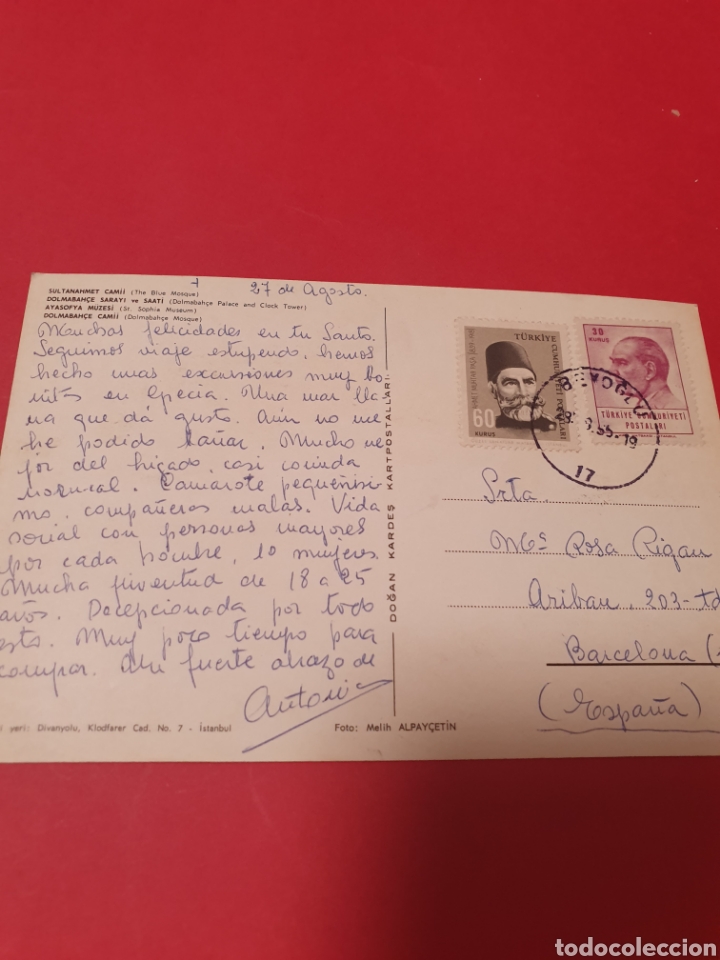 SULTANAHMET CAMİİ (The Blue Mosque)
DOLMABAHÇE SARAYI ve SAATİ (Dolmabahçe Palace and Clock Tower)
AYASOFYA MÜZESİ (St. Sophia Museum)
DOLMABAHÇE CAMİİ (Dolmabahçe Mosque)
27 de Agosto.
Muchas felicidades en tu Santo.
Seguimos viaje estupendo, hemos
hecho unas excursiones muy bo-
nitas en Grecia. Una mar lla-
na que dá gusto. Aún no me
he podido bañar. Mucho me-
jor del hígado, casi comida
normal. Camarote pequeñísi-
mo, compañeras malas. Vida
social con personas mayores
por cada hombre, 10 mujeres.
Mucha juventud de 18 a 25
años. Decepcionada por todo
esto. Muy poco tiempo para
compar. Un fuerte abrazo de
yeri: Divanyolu, Klodfarer Cad. No. 7 - İstanbul
Foto: Melih ALPAYÇETİN
DOĞAN KARDEŞ KARTPOSTALLARI
TÜRKİYE
CUMHURİYETİ POSTALARI
60
KURUŞ
30
KURUŞ
TÜRKİYE CUMHURİYETİ
POSTALARI
BEYOĞLU
17
Srta
Mª Rosa Rigau
Aribau, 203-
Barcelona
(España)
todocoleccion